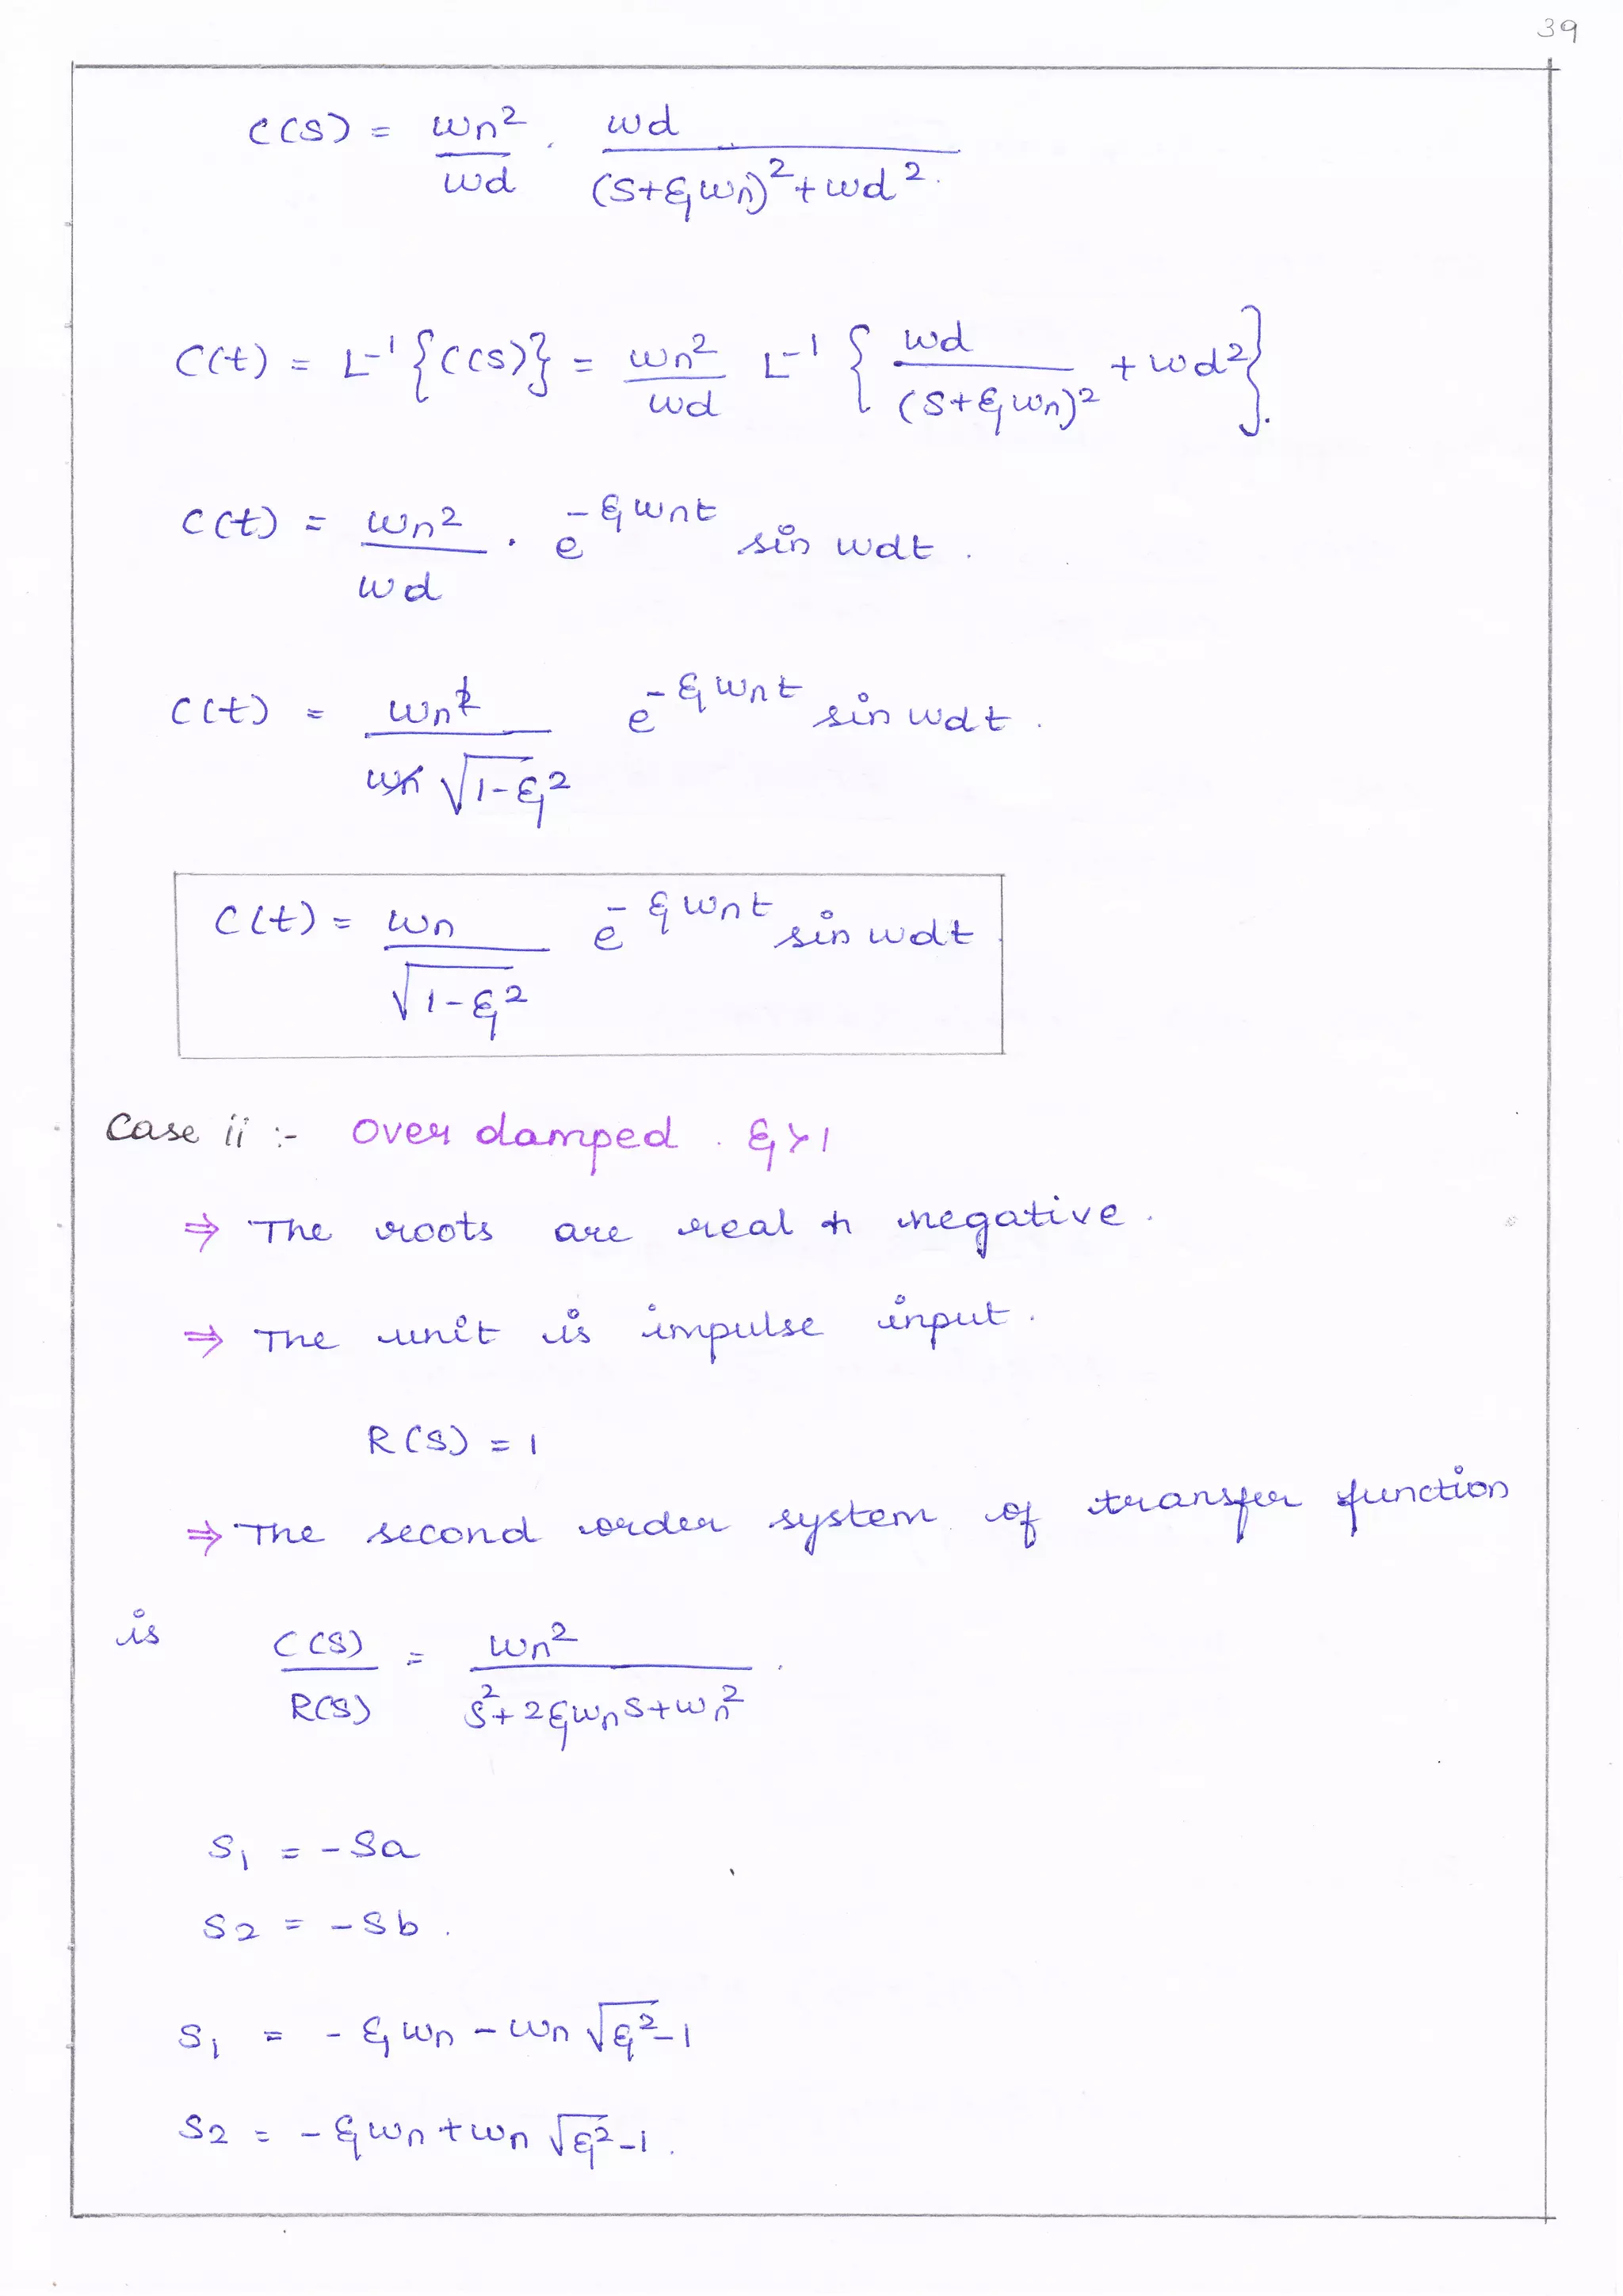 39
C(S) = ωn² / ωd . ωd / (S+ξωn)²+ωd².
C(t) = L⁻¹{C(S)} = ωn² / ωd L⁻¹ { ωd / (S+ξωn)² + ωd² }.
C(t) = ωn² / ωd . e^-ξωnt sin ωdt .
C(t) = ωn² / ωn √1-ξ² e^-ξωnt sin ωdt .
C(t) = ωn / √1-ξ² e^-ξωnt sin ωdt .
Case ii :- Over damped . ξ>1
⇒ The roots are real & negative .
⇒ The unit is impulse input .
R(S) = 1
⇒ The second order system of transfer function
is C(S) / R(S) = ωn² / S²+2ξωnS+ωn² .
S₁ = -Sa
S₂ = -Sb .
S₁ = -ξωn - ωn √ξ²-1
S₂ = -ξωn + ωn √ξ²-1 .